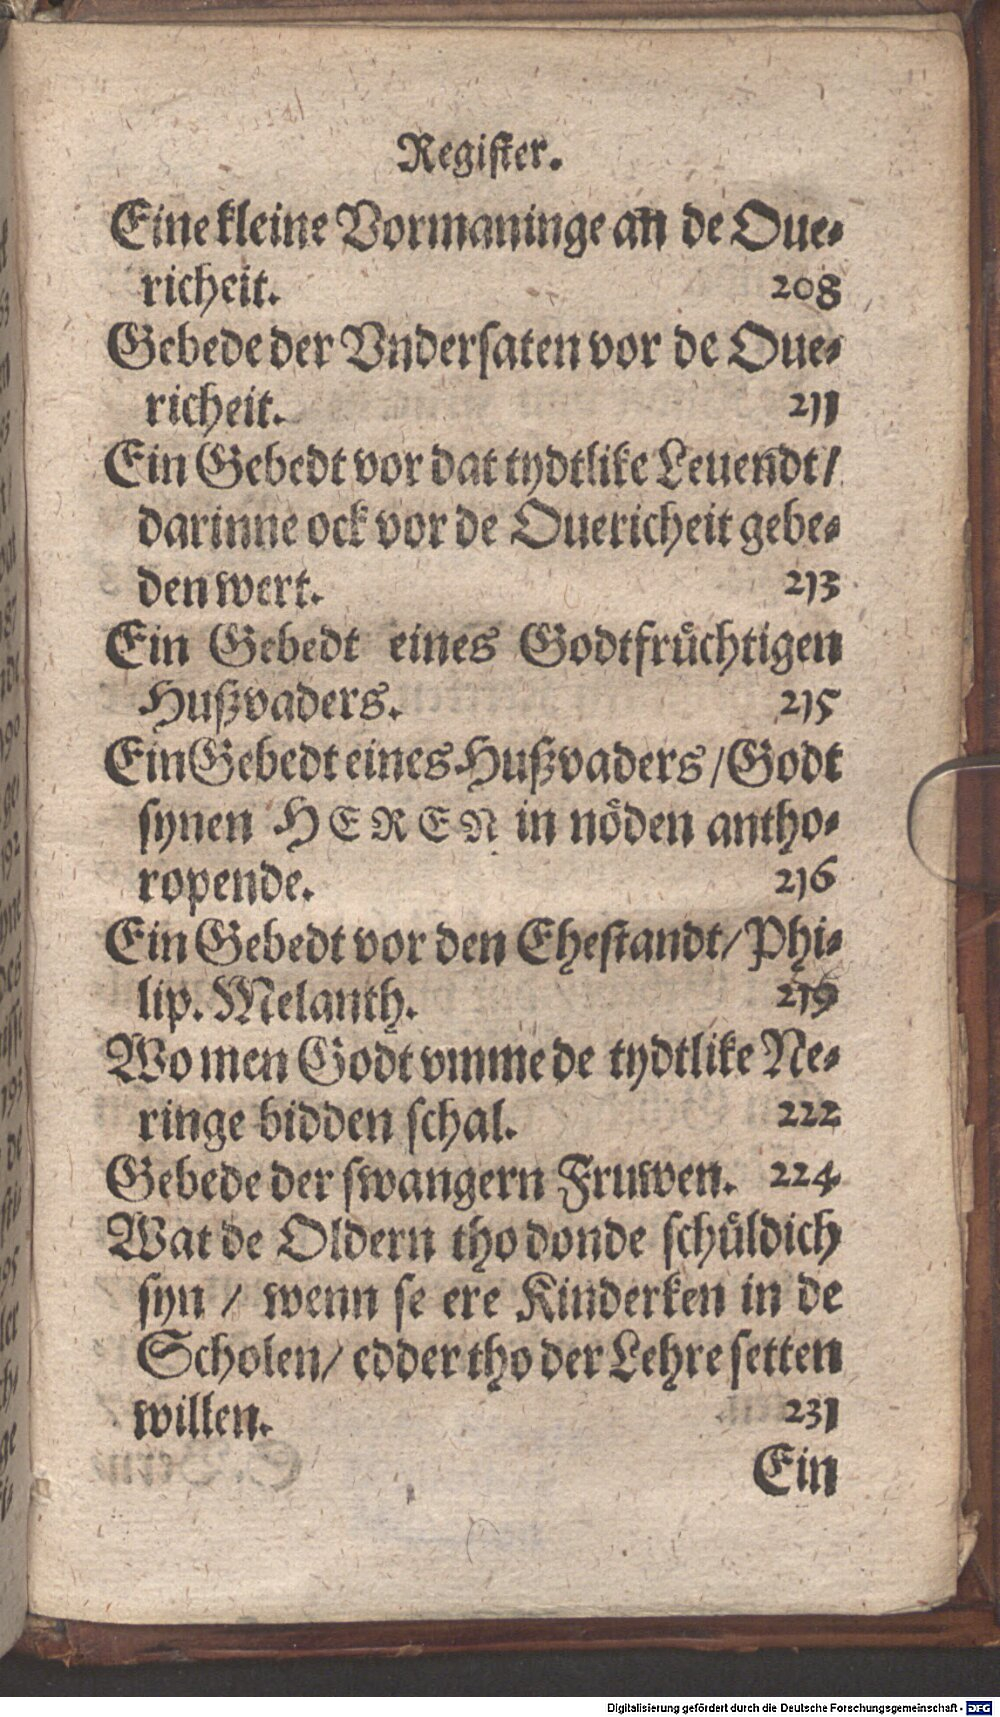 Register.
Eine kleine Vormaninge an de Oue-
richeit. 208
Gebede der Vndersaten vor de Oue-
richeit. 211
Ein Gebedt vor dat tydtlike Leuendt/
darinne ock vor de Ouericheit gebe-
den wert. 213
Ein Gebedt eines Godtfrüchtigen
Hußvaders. 215
Ein Gebedt eines Hußvaders/Godt
synen HEREN in nöden antho-
ropende. 216
Ein Gebedt vor den Ehestandt/Phi-
lip. Melanth. 219
Wo men Godt vmme de tydtlike Ne-
ringe bidden schal. 222
Gebede der swangern Fruwen. 224
Wat de Oldern tho donde schüldich
syn / wenn se ere Kinderken in de
Scholen/ edder tho der Lehre setten
willen. 231
Ein
Digitalisierung gefördert durch die Deutsche Forschungsgemeinschaft - DFG